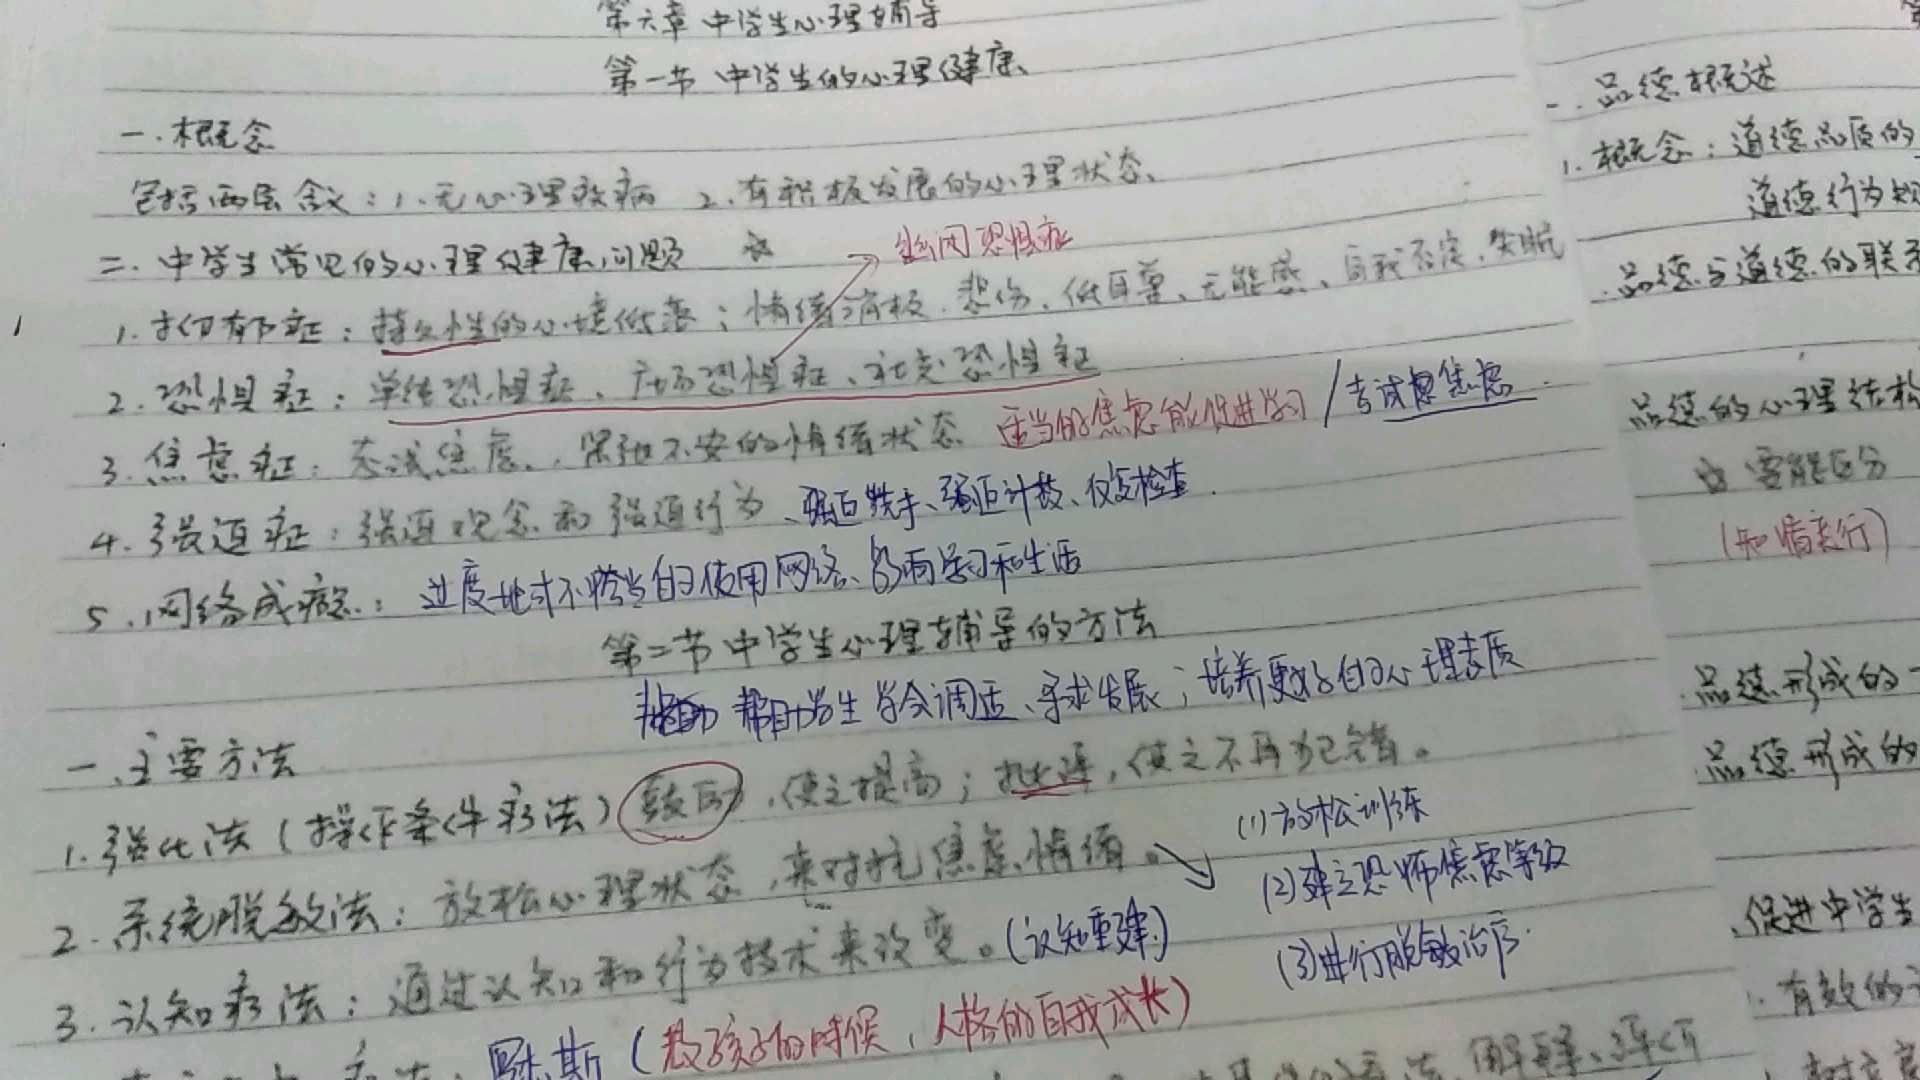 第六章 中学生心理辅导
第一节 中学生的心理健康
一.概念
包括两层含义:1.无心理疾病 2.有积极发展的心理状态
二.中学生常见的心理健康问题 ☆
幽闭恐惧症
1.抑郁症:持久性的心境低落;情绪消极、悲伤、低自尊、无能感、自我否定、失眠
2.恐惧症:单纯恐惧症、广场恐惧症、社交恐惧症
3.焦虑症:考试焦虑、紧张不安的情绪状态 适当的焦虑能促进学习/考试焦虑
4.强迫症:强迫观念和强迫行为、强迫洗手、强迫计数、反复检查.
5.网络成瘾:过度地才不恰当的使用网络、影响学习和生活
第二节 中学生心理辅导的方法
帮助学生学会调适、寻求发展;培养更好的心理素质
一.主要方法
1.强化法(操作条件疗法)鼓励,使之提高;批评,使之不再犯错。
2.系统脱敏法:放松心理状态,来对抗焦虑情绪。
(1)放松训练
(2)建立恐怖焦虑等级
(3)进行脱敏治疗.
3.认知疗法:通过认知和行为技术来改变。(认知重建)
(教孩子的时候,人格的自我成长)
一.品德概述
1.概念:道德品质的
道德行为规
品德与道德的联系
品德的心理结构
要能区分
(知情意行)
品德形成的一
品德形成的
促进中学生
有效的